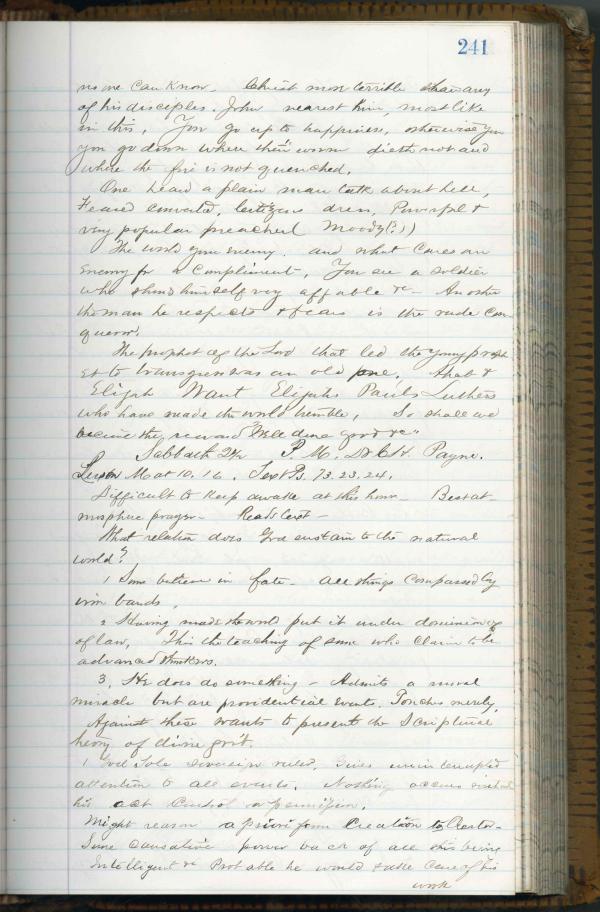 241
no one can know. Christ more terrible than any
of his disciples. John nearest him, most like
in this. You go up to happiness, otherwise you
you go down where their worm dieth not and
where the fire is not quenched.
One heard a plain man talk about hell,
Feared converted, dress, Powerful &
very popular preacher! Moody(?))
The world your enemy. and what cares an
enemy for a compliment. You see a soldier
who shows himself very affable &c Another
the man he respects & fears is the rude con
queror.
The prophet of the Lord that led the young proph
et to transgress was an old one. that &
Elijah Want Elijahs Pauls Luthers
who have made the world tremble. So shall we
receive the reward Well done good &c"
Sabbath 2½ P. M. Dr. C. H. Payne.
Lesson Mat 10. 16. Text Ps. 73. 23. 24.
Difficult to keep awake at this hour Best at-
mosphere prayer- Reads text-
What relation does God sustain to the natural
world?
1 Some believe in fate- all things compassed by
iron bands.
2 Having made the world put it under dominion of
of law. This the teaching of some who claim to be
advanced thinkers.
3. He does do something - Admits a moral
miracle but are providential events. Touches merely.
Against these wants to present the Scriptural
theory of divine gov't.
1 God Sole sovereign ruler. Gives uninterrupted
attention to all events. Nothing occurs without
his act control or permission.
Might reason a priori from Creation to Creator-
Some causative power back of all this being
Intelligent &c Probable he would take care of his
work